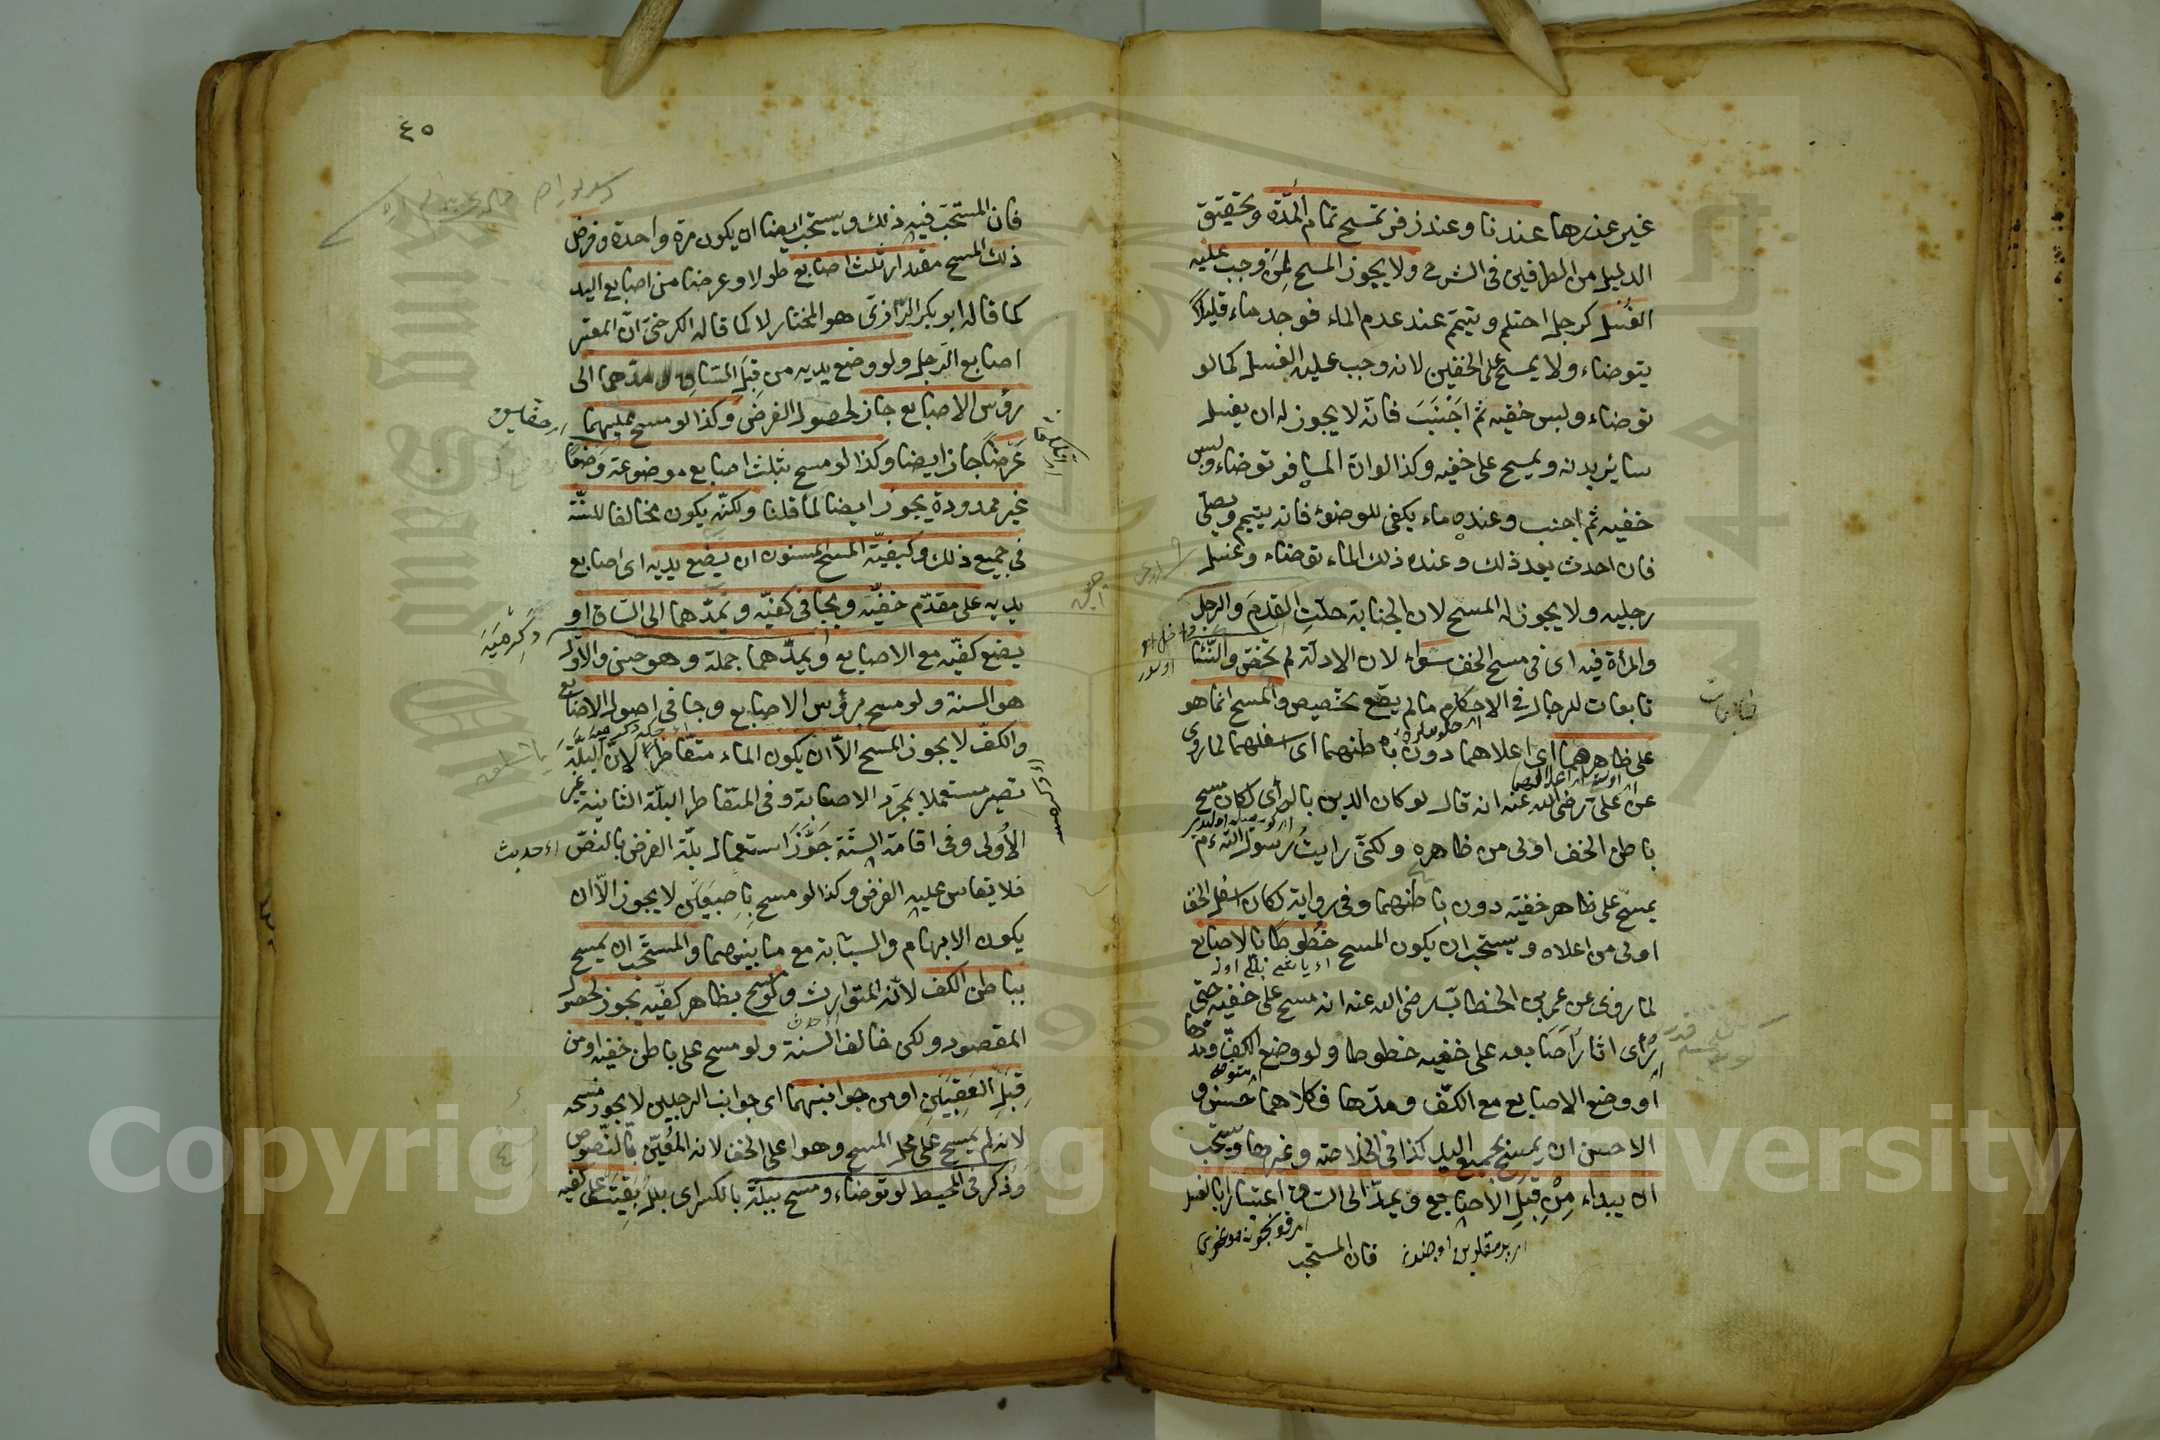 غير عذرها عندنا وعند زفر تمسح تمام المدة وتحقيق
الدليل من الطرفين في الشرح ولا يجوز المسح لمن وجب عليه
الغسل كرجل احتلم وتيمم عند عدم الماء فوجد ماء قليلا
يتوضاء ولا يمسح على الخفين لانه وجب عليه الغسل كما لو
توضاء ولبس خفيه ثم اجنب فانه لا يجوز له ان يغسل
سائر بدنه ويمسح على خفيه وكذا لو ان المسافر توضاء ولبس
خفيه ثم اجنب وعنده ماء يكفى للوضوء فانه يتيمم ويصلي
فان احدث بعد ذلك وعنده ذلك الماء توضاء وغسل
رجليه ولا يجوز له المسح لان الجنابة حلت القدم والرجل
والمرأة فيه اى فى مسح الخف سواء لان الادلة لم تخص والنساء
تابعات للرجال في الاحكام مالم يقع تخصيص والمسح انما هو
على ظاهرهما اى اعلاهما دون باطنهما اى اسفلهما لما روى
عن على رضى الله عنه انه قال لو كان الدين بالرأى لكان مسح
باطن الخف اولى من ظاهره ولكنى رايت رسول الله عم
يمسح على ظاهر خفيه دون باطنهما وفى رواية لكان اسفل الخف
اولى من اعلاه ويستحب ان يكون المسح خطوطا بالاصابع
لما روى عن عمر بن الخطاب رضى الله عنه انه مسح على خفيه حتى
رؤى اثار اصابعه على خفيه خطوطا ولو وضع الكف ومدها
او وضع الاصابع مع الكف ومدها فكلاهما حسن و
الاحسن ان يمسح بجميع اليد كذا في الخلاصة وغيرها ويستحب
ان يبداء من قبل الاصابع ويمد الى الساق اعتبارا بالغسل
فان المستحب
٤٥
فان المستحب فيه ذلك ويستحب ايضا ان يكون مرة واحدة وفرض
ذلك المسح مقدار ثلث اصابع طولا وعرضا من اصابع اليد
كما قاله ابو بكر الرازى هو المختار لا كما قاله الكرخى ان المعتبر
اصابع الرجل ولو وضع يديه من قبل الساق ومدهما الى
رؤس الاصابع جاز لحصول الفرض وكذا لو مسح عليهما
عرضا جاز ايضا وكذا لو مسح بثلث اصابع موضوعة وضعا
غير ممدودة يجوز ايضا لما قلنا ولكنه يكون مخالفا للسنة
في جميع ذلك وكيفية المسح المسنون ان يضع يديه اى اصابع
يديه على مقدم خفيه ويجافى كفيه ويمدهما الى الساق او
يضع كفيه مع الاصابع ويمدهما جملة وهو حسن والاول
هو السنة ولو مسح برؤس الاصابع وجافى اصول الاصابع
والكف لا يجوز المسح الا ان يكون الماء متقاطرا لان البلة
تصير مستعملا بمجرد الاصابة وفى المتقاطر البلة الثانية غير
الاولى وفى اقامة السنة جوز استعمال بلة الفرض بالنص
فلا يقاس عليه الفرض وكذا لو مسح باصبعين لا يجوز الا ان
يكون الابهام والسبابة مع ما بينهما والمستحب ان يمسح
بباطن الكف لانه المتوارث ولو مسح بظاهر كفيه يجوز لحصول
المقصود ولكن خالف السنة ولو مسح على باطن خفيه او من
قبل العقبين او من جوانبهما اى جوانب الرجلين لا يجوز مسحه
لانه لم يمسح على محل المسح وهو اعلى الخف لانه المعين بالنصوص
وذكر فى المحيط لو توضاء ومسح ببلة بالكسر اى بلل بقيت على كفيه
Copyright © King Saud University